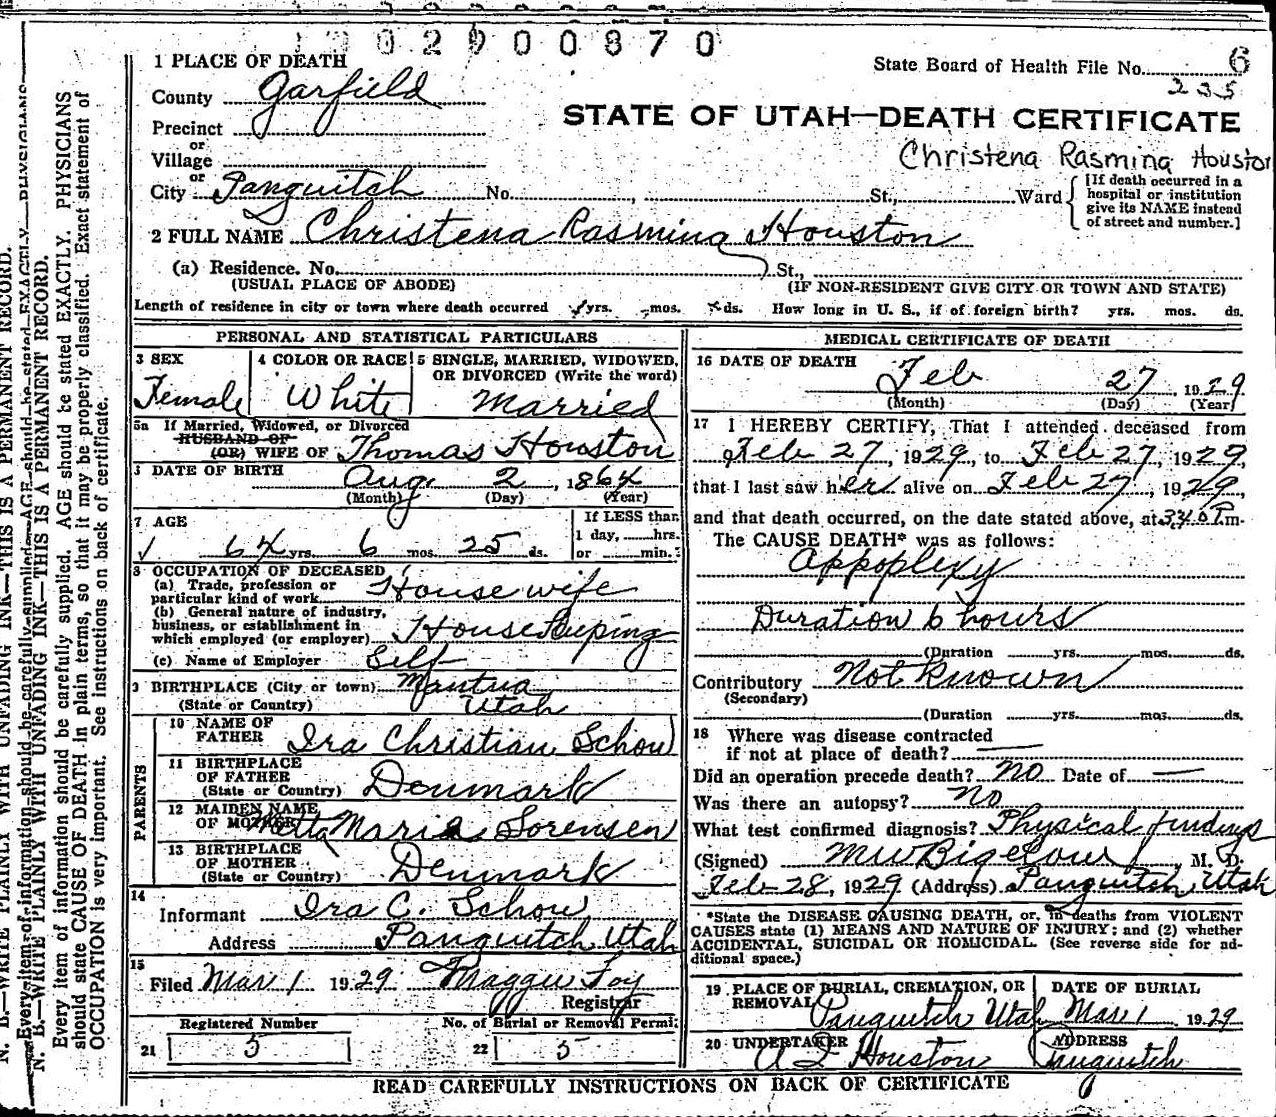 1 0 0 2 9 0 0 8 7 0
1 PLACE OF DEATH
State Board of Health File No. 6
235
County Garfield
STATE OF UTAH—DEATH CERTIFICATE
Precinct
or
Christena Rasmina Houston
Village
or
City Panguitch No. , St., Ward
[If death occurred in a
hospital or institution
give its NAME instead
of street and number.]
2 FULL NAME Christena Rasmina Houston
(a) Residence. No. St.,
(USUAL PLACE OF ABODE) (IF NON-RESIDENT GIVE CITY OR TOWN AND STATE)
Length of residence in city or town where death occurred yrs. mos. ds. How long in U. S., if of foreign birth? yrs. mos. ds.
PERSONAL AND STATISTICAL PARTICULARS
3 SEX
Female
4 COLOR OR RACE
White
5 SINGLE, MARRIED, WIDOWED,
OR DIVORCED (Write the word)
Married
5a If Married, Widowed, or Divorced
HUSBAND OF
(OR) WIFE OF Thomas Houston
DATE OF BIRTH Aug 2, 1864
(Month) (Day) (Year)
7 AGE
64 yrs. 6 mos. 25 ds.
If LESS than
1 day, hrs.
or min.
8 OCCUPATION OF DECEASED
(a) Trade, profession or
particular kind of work Housewife
(b) General nature of industry,
business, or establishment in
which employed (or employer) Housekeeping
(c) Name of Employer Self
9 BIRTHPLACE (City or town) Mantua
(State or Country) Utah
PARENTS
10 NAME OF
FATHER Ira Christian Schow
11 BIRTHPLACE
OF FATHER
(State or Country) Denmark
12 MAIDEN NAME
OF MOTHER Metta Maria Sorensen
13 BIRTHPLACE
OF MOTHER
(State or Country) Denmark
14
Informant Ira C. Schow
Address Panguitch Utah
15
Filed Mar 1 1929 Maggie Foy
Registrar
Registered Number No. of Burial or Removal Permit
21 5 22 5
MEDICAL CERTIFICATE OF DEATH
16 DATE OF DEATH
Feb 27 1929
(Month) (Day) (Year)
17 I HEREBY CERTIFY, That I attended deceased from
Feb 27, 1929, to Feb 27, 1929,
that I last saw her alive on Feb 27, 1929,
and that death occurred, on the date stated above, at m.
The CAUSE DEATH* was as follows:
Appoplexy
Duration 6 hours
(Duration yrs. mos. ds.
Contributory Not Known
(Secondary)
(Duration yrs. mos. ds.
18 Where was disease contracted
if not at place of death? —
Did an operation precede death? no Date of —
Was there an autopsy? no
What test confirmed diagnosis? Physical findings
(Signed) M W Bigelow, M. D.
Feb 28, 1929 (Address) Panguitch, Utah
*State the DISEASE CAUSING DEATH, or, in deaths from VIOLENT
CAUSES state (1) MEANS AND NATURE OF INJURY; and (2) whether
ACCIDENTAL, SUICIDAL OR HOMICIDAL. (See reverse side for ad-
ditional space.)
19 PLACE OF BURIAL, CREMATION, OR
REMOVAL Panguitch Utah
DATE OF BURIAL
Mar 1 1929
20 UNDERTAKER
Houston
ADDRESS
Panguitch
READ CAREFULLY INSTRUCTIONS ON BACK OF CERTIFICATE
N. B.—WRITE PLAINLY WITH UNFADING INK—THIS IS A PERMANENT RECORD.
Every item of information should be carefully supplied. AGE should be stated EXACTLY. PHYSICIANS
should state CAUSE OF DEATH in plain terms, so that it may be properly classified. Exact statement of
OCCUPATION is very important. See instructions on back of certificate.